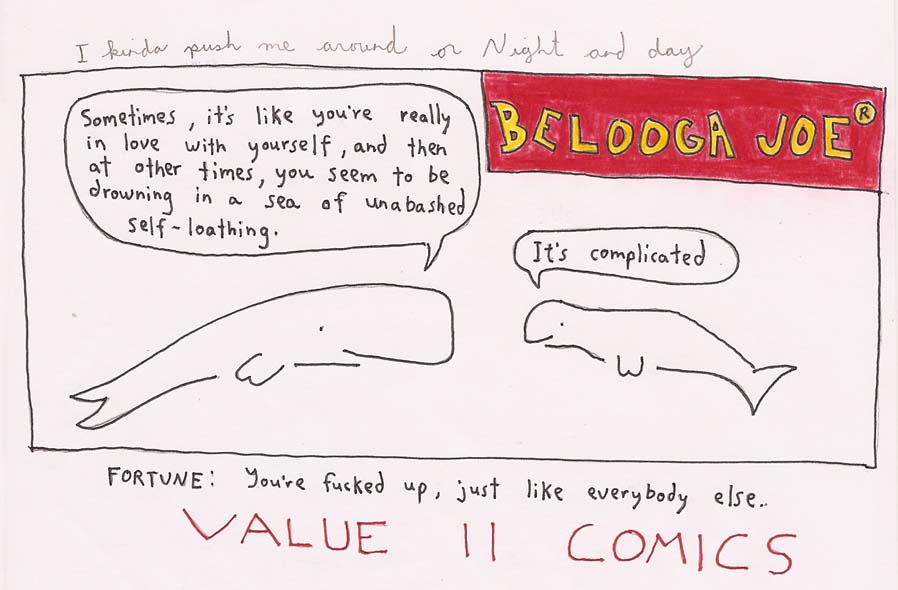 I kinda push me around or Night and day
BELOOGA JOE®
Sometimes, it's like you're really
in love with yourself, and then
at other times, you seem to be
drowning in a sea of unabashed
self-loathing.
It's complicated
FORTUNE: You're fucked up, just like everybody else..
VALUE II COMICS